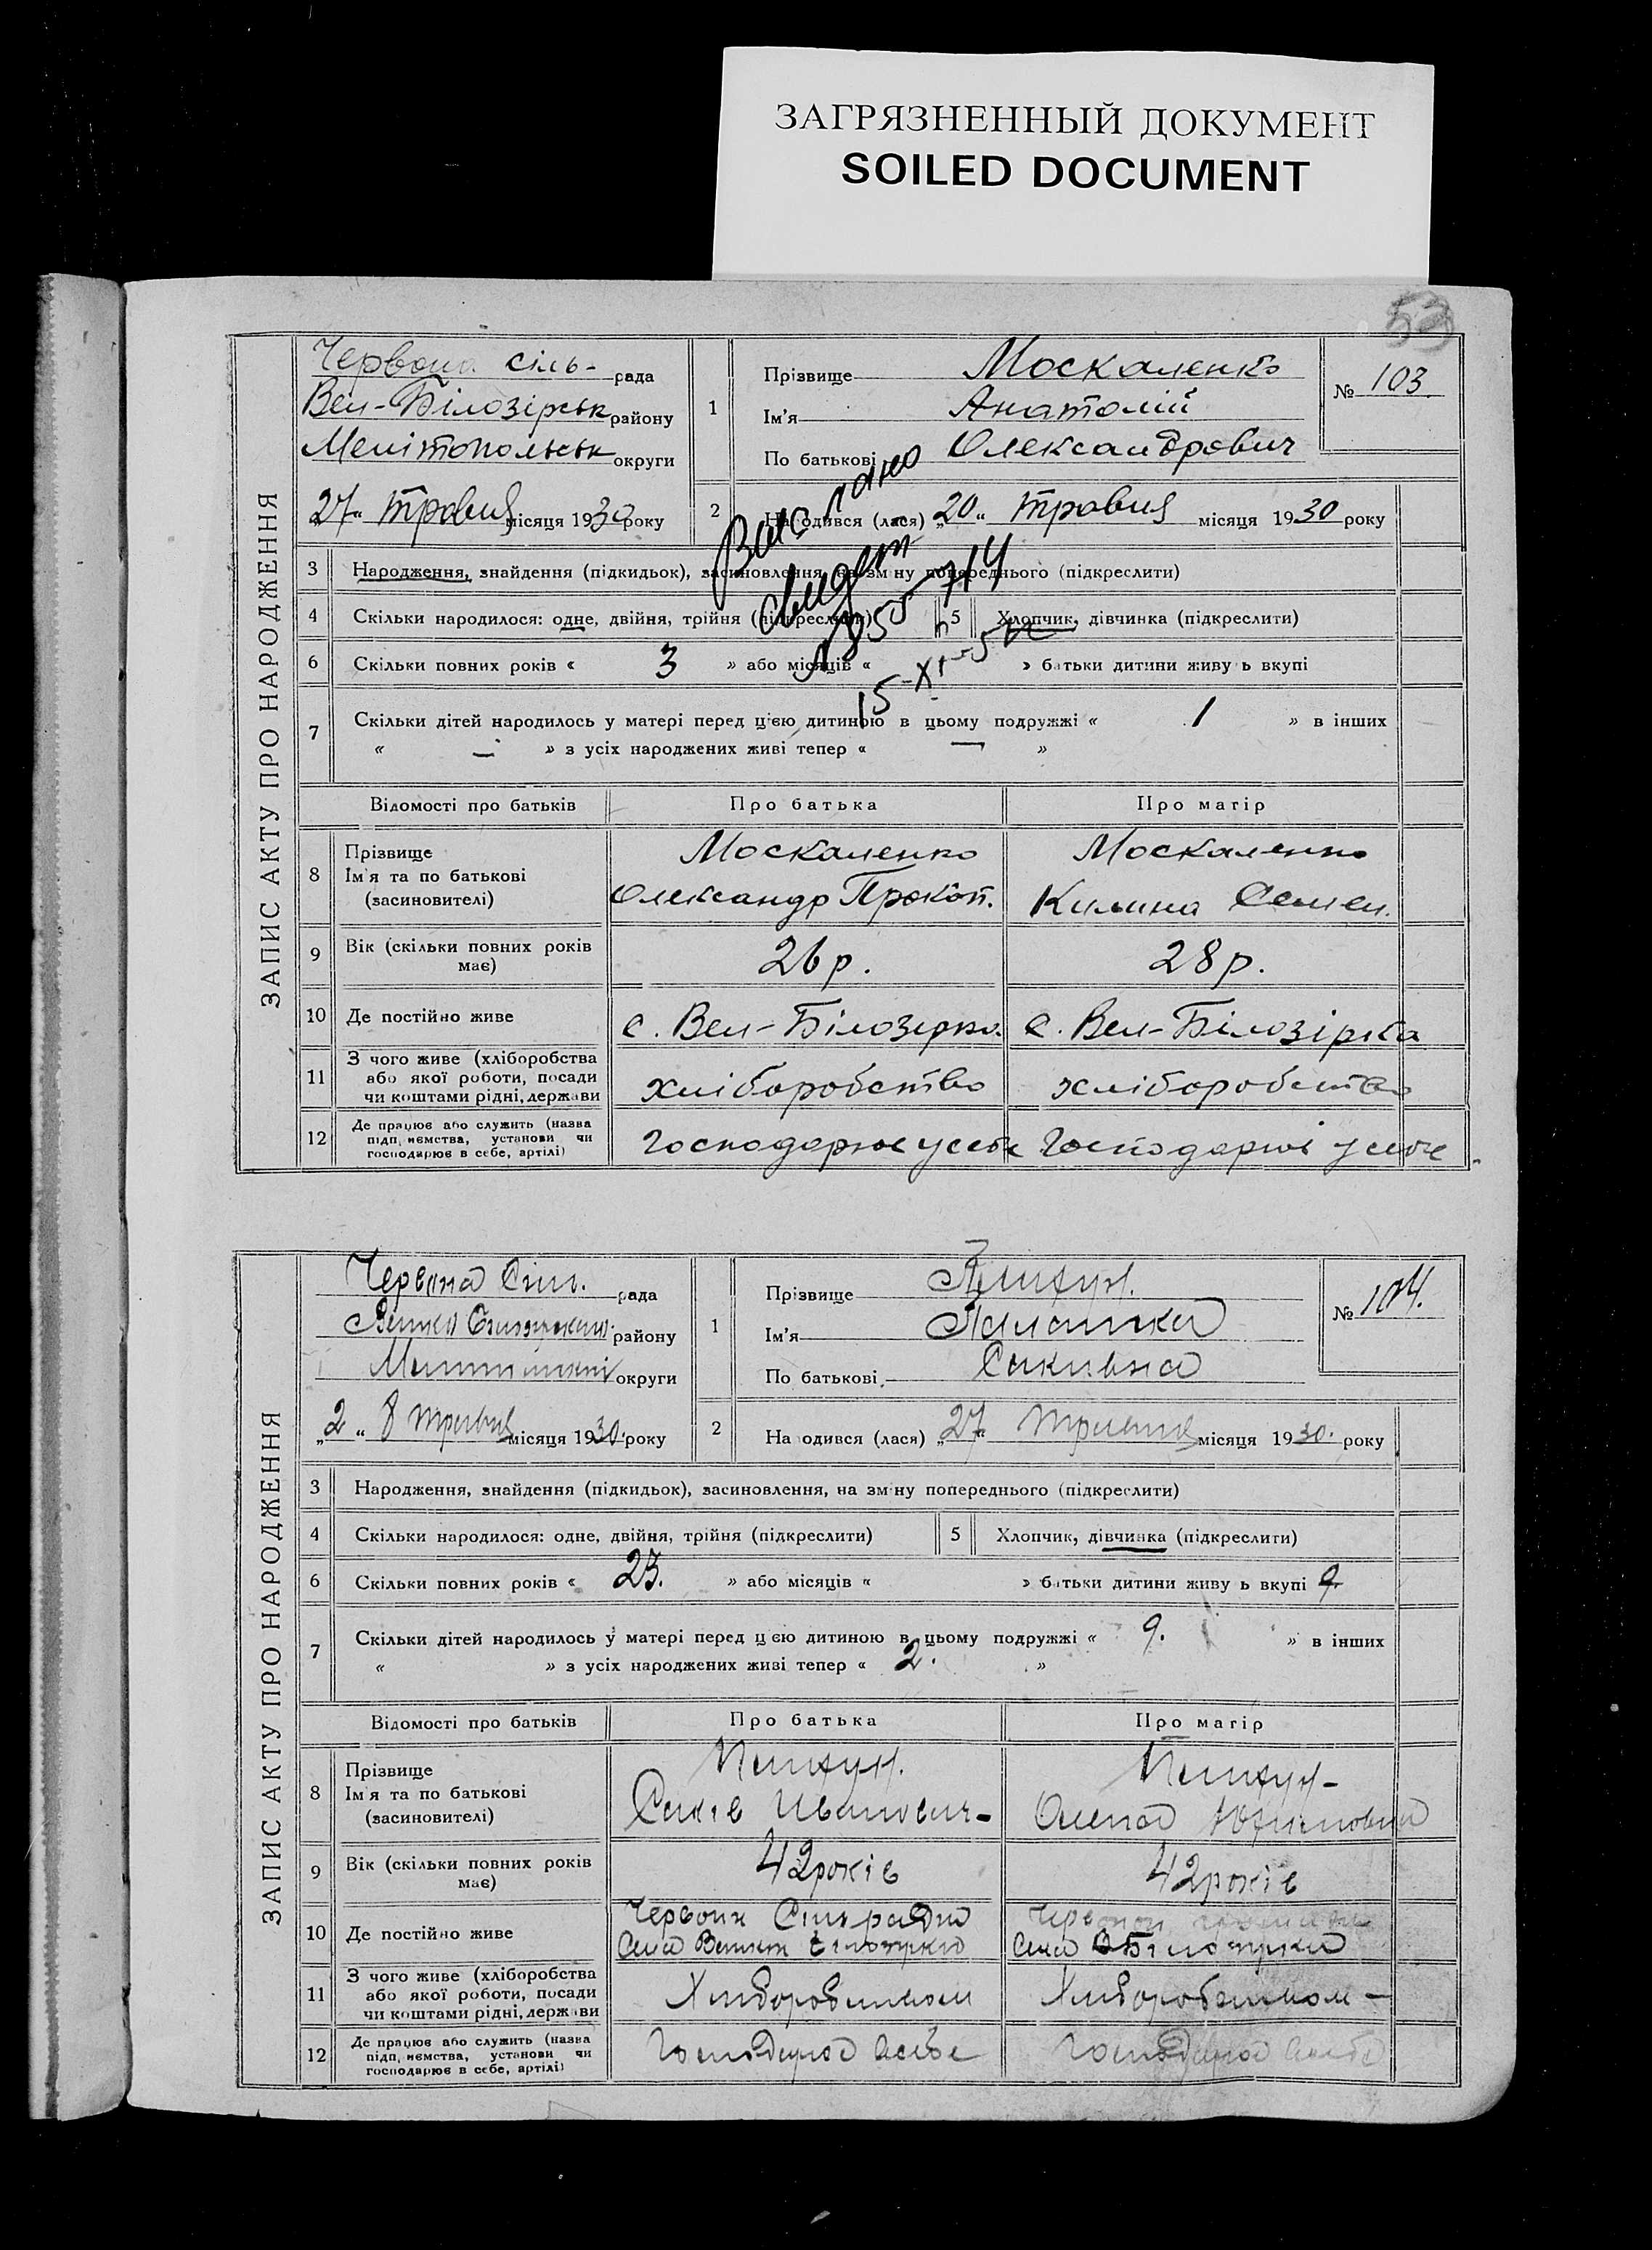 ЗАГРЯЗНЕННЫЙ ДОКУМЕНТ
SOILED DOCUMENT
53
ЗАПИС АКТУ ПРО НАРОДЖЕННЯ
Червона сіль- рада
Вел-Білозірськ району
Мелітопольськ округи
27 " травня місяця 1930 року
1 Прізвище Москаленко
Ім'я Анатолій
По батькові Олександрович
№ 103.
2 Народився (лася) „20 " травня місяця 1930 року
3 Народження, знайдення (підкидьок), засиновлення, на зміну попереднього (підкреслити)
4 Скільки народилося: одне, двійня, трійня (підкреслити) 5 Хлопчик, дівчинка (підкреслити)
6 Скільки повних років « 3 » або місяців « » батьки дитини живуть вкупі
15-XI-
7 Скільки дітей народилось у матері перед цією дитиною в цьому подружжі « 1 » в інших
« — » з усіх народжених живі тепер « — »
Відомості про батьків Про батька Про матір
8 Прізвище Москаленко Москаленко
Ім'я та по батькові Олександр Прокоп. Килина Семен.
(засиновителі)
9 Вік (скільки повних років має) 26 р. 28 р.
10 Де постійно живе с. Вел-Білозірка с. Вел-Білозірка
11 З чого живе (хліборобства
або якої роботи, посади
чи коштами рідні, держави хліборобство хліборобство
12 Де працює або служить (назва
підприємства, установи чи
господарює в себе, артілі) Господарює у себе Господарює у себе
ЗАПИС АКТУ ПРО НАРОДЖЕННЯ
Червона Сіль. рада
району
округи
„2 " 8 травня місяця 1930. року
1 Прізвище
Ім'я Палашка
По батькові Сакивна
№ 104.
2 Народився (лася) „27 " травня місяця 1930. року
3 Народження, знайдення (підкидьок), засиновлення, на зміну попереднього (підкреслити)
4 Скільки народилося: одне, двійня, трійня (підкреслити) 5 Хлопчик, дівчинка (підкреслити)
6 Скільки повних років « 23. » або місяців « » батьки дитини живуть вкупі 9.
7 Скільки дітей народилось у матері перед цією дитиною в цьому подружжі « 9. » в інших
« » з усіх народжених живі тепер « 2. »
Відомості про батьків Про батька Про матір
8 Прізвище
Ім'я та по батькові Саків Иванович-
(засиновителі)
9 Вік (скільки повних років має) 42 років 42 років
10 Де постійно живе Червон Сільрада Червон
Села Велик Білозірка Села В Білозірка
11 З чого живе (хліборобства
або якої роботи, посади
чи коштами рідні, держави Хліборобством Хліборобством -
12 Де працює або служить (назва
підприємства, установи чи
господарює в себе, артілі)